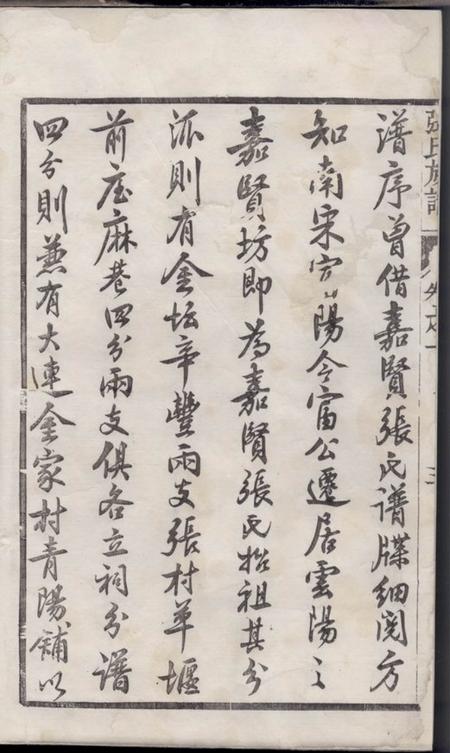 譜序曾借嘉賢張氏譜牒細閱方
知南宋宜陽令甯公遷居雲陽之
嘉賢坊即為嘉賢張氏始祖其分
派則有金坛辛豐兩支張村草堰
前庄麻巷四分兩支俱各立祠分譜
四分則兼有大連金家村青陽舖以
張氏族譜